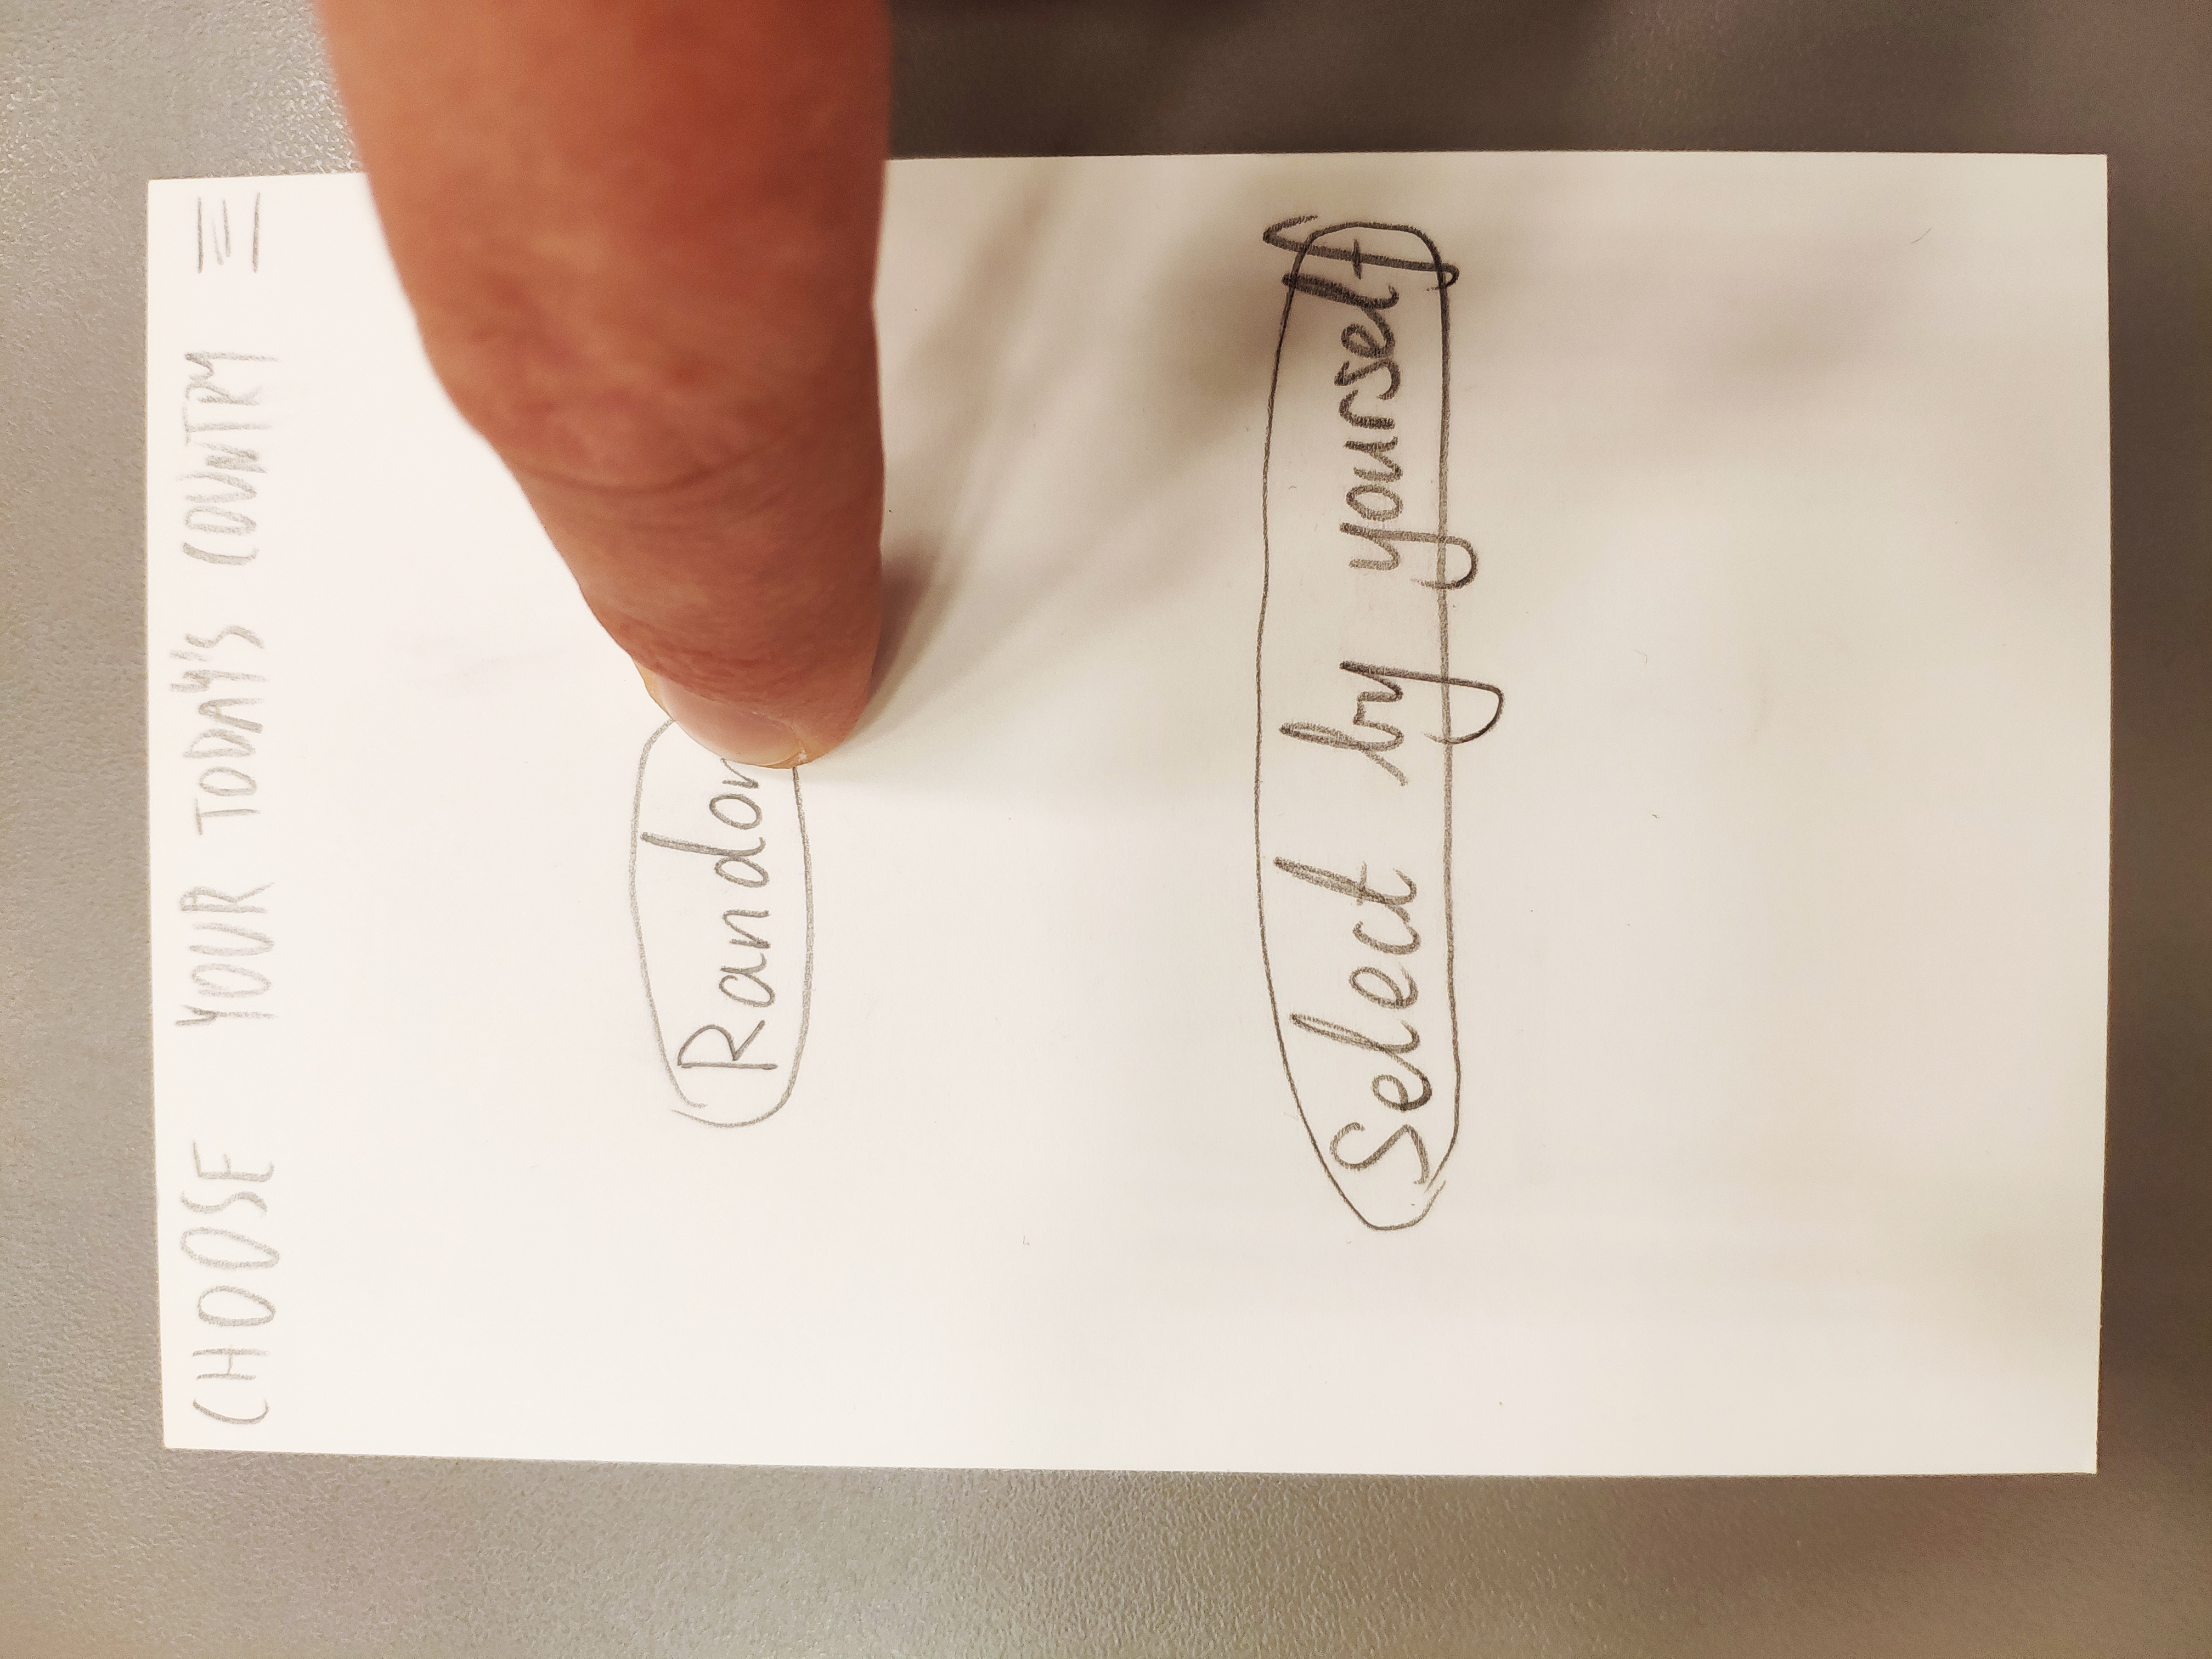 CHOOSE YOUR TODAY'S COUNTRY
Random
Select by yourself